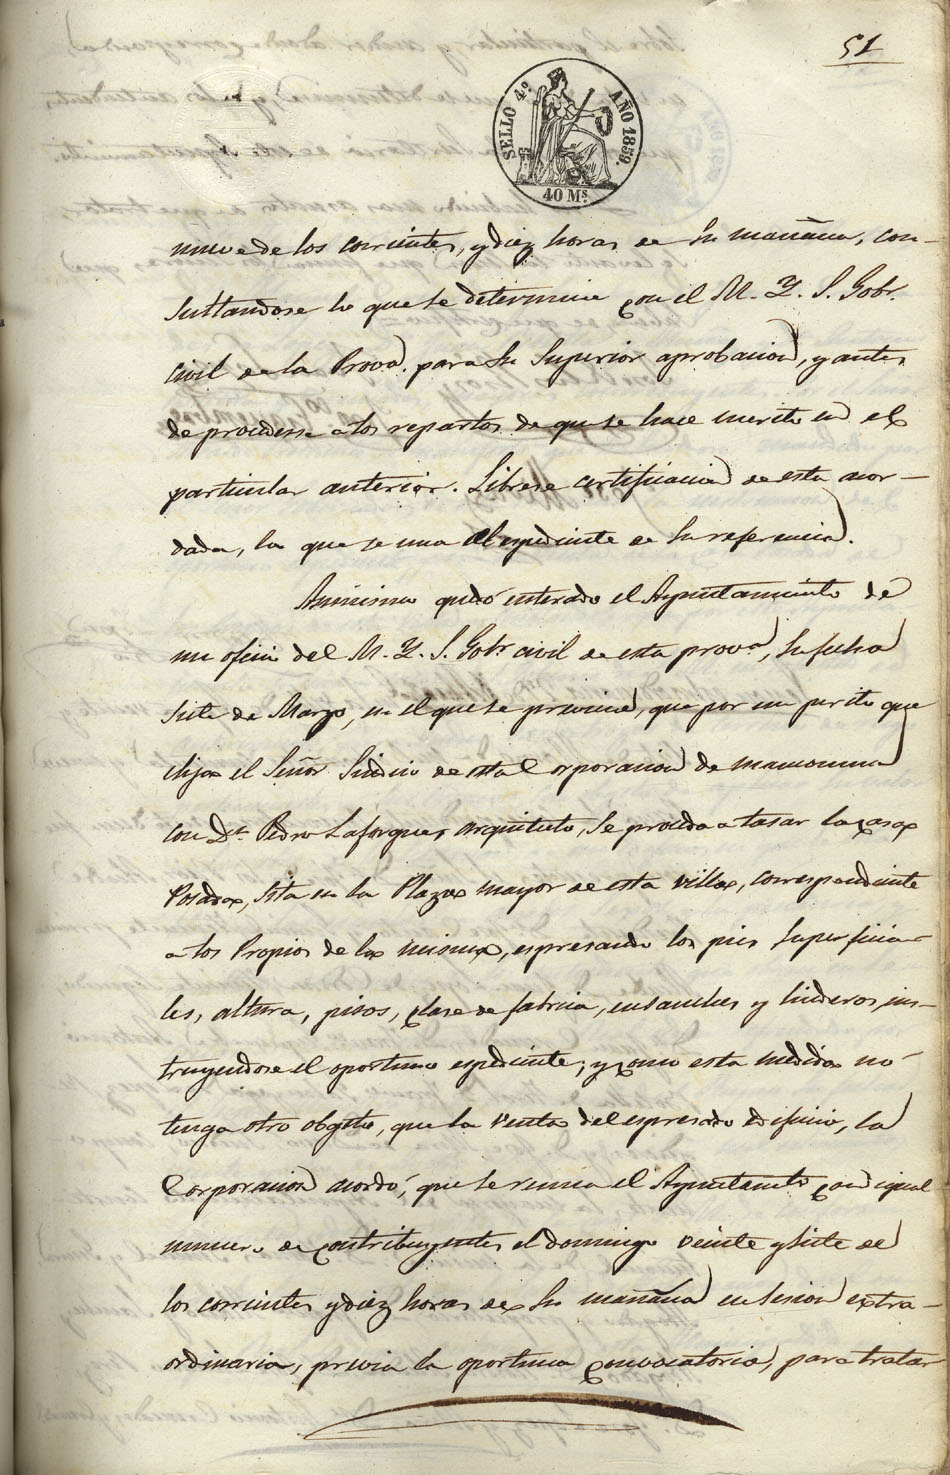 51
SELLO 4º AÑO 1859.
40 Ms.
nueve de los corrientes, y diez horas de su mañana, con-
sultandose lo que se determine con el M. Y. S. Gobr.
civil de la Prova. para su superior aprobacion, y antes
de procederse a los repartos de que se hace merito en el
particular anterior. Librese certificacion de esta acor-
dada, la que se una al espediente de su referencia.
Asimismo quedó enterado el Ayuntamiento de
un oficio del M. Y. S. Gobr. civil de esta prova, su fecha
siete de Marzo, en el que se previene, que por un perito que
elija el Señor Sindico de esta Corporacion de mancomun
con Dn. Pedro Laforgue, arquitecto, se proceda a tasar la casa
Posada, sita en la Plaza mayor de esta villa, correspondiente
a los Propios de la misma, espresando los pies superficia-
les, altura, pisos, clase de fabrica, ensanches y linderos, ins-
truyendose el oportuno espediente; y como esta medida no
tenga otro obgeto, que la venta del espresado edificio, la
Corporacion acordó, que se reuna el Ayuntamto. con igual
numero de contribuyentes el domingo veinte y siete de
los corrientes y diez horas de su mañana en sesion extra-
ordinaria, previa la oportuna convocatoria, para tratar